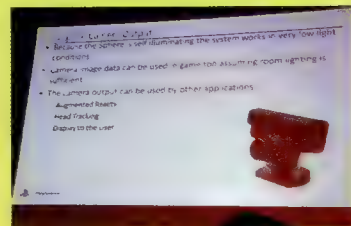 • Because the Sphere is self illuminating the system works in very low light
conditions
• Camera image data can be used in game too assuming room lighting is
sufficient
• The camera output can be used by other applications
Augmented Reality
Head Tracking
Display to the user